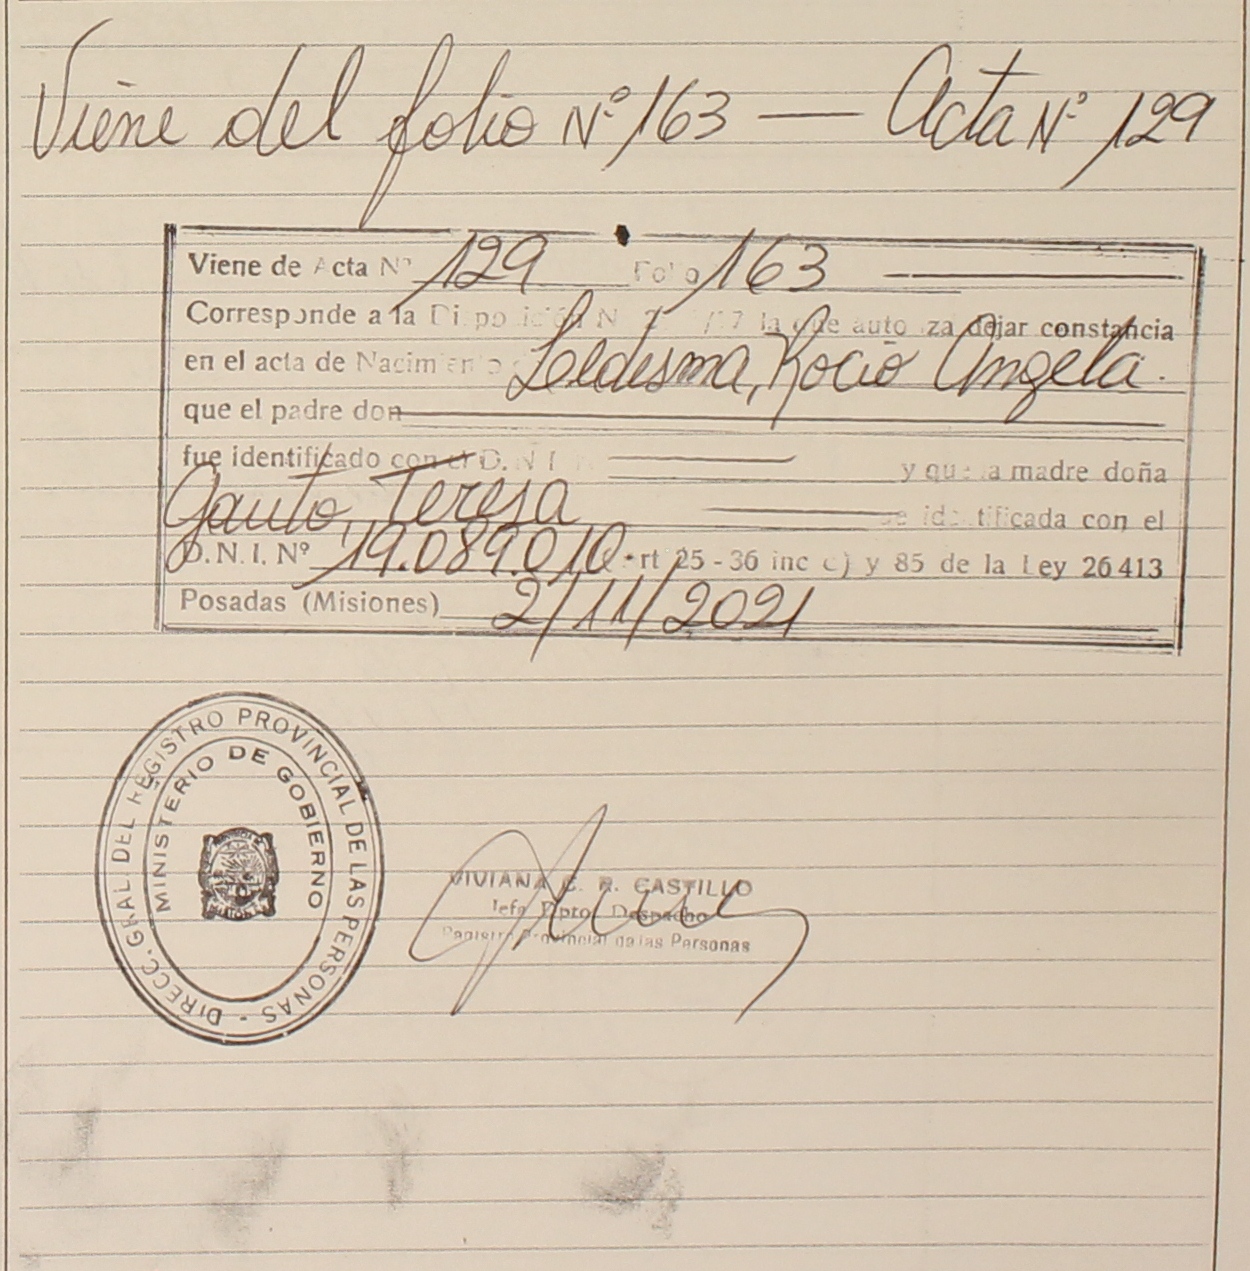 Viene del folio Nº 163 — Acta Nº 129
Viene de Acta Nº 129 Folio 163
Corresponde a la Disposición N /17 la que autoriza dejar constancia
en el acta de Nacimiento Ledesma, Rocio Angela.
que el padre don
fue identificado con el D.N.I. y que la madre doña
Gauto, Teresa se identificada con el
D.N.I. Nº 19.089.010 art 25 - 36 inc c) y 85 de la Ley 26413
Posadas (Misiones) 2/11/2021
DIRECC. GRAL. DEL REGISTRO PROVINCIAL DE LAS PERSONAS -
MINISTERIO DE GOBIERNO
VIVIANA C. R. CASTILLO
Jefe Dpto. Despacho
Registro Provincial de las Personas